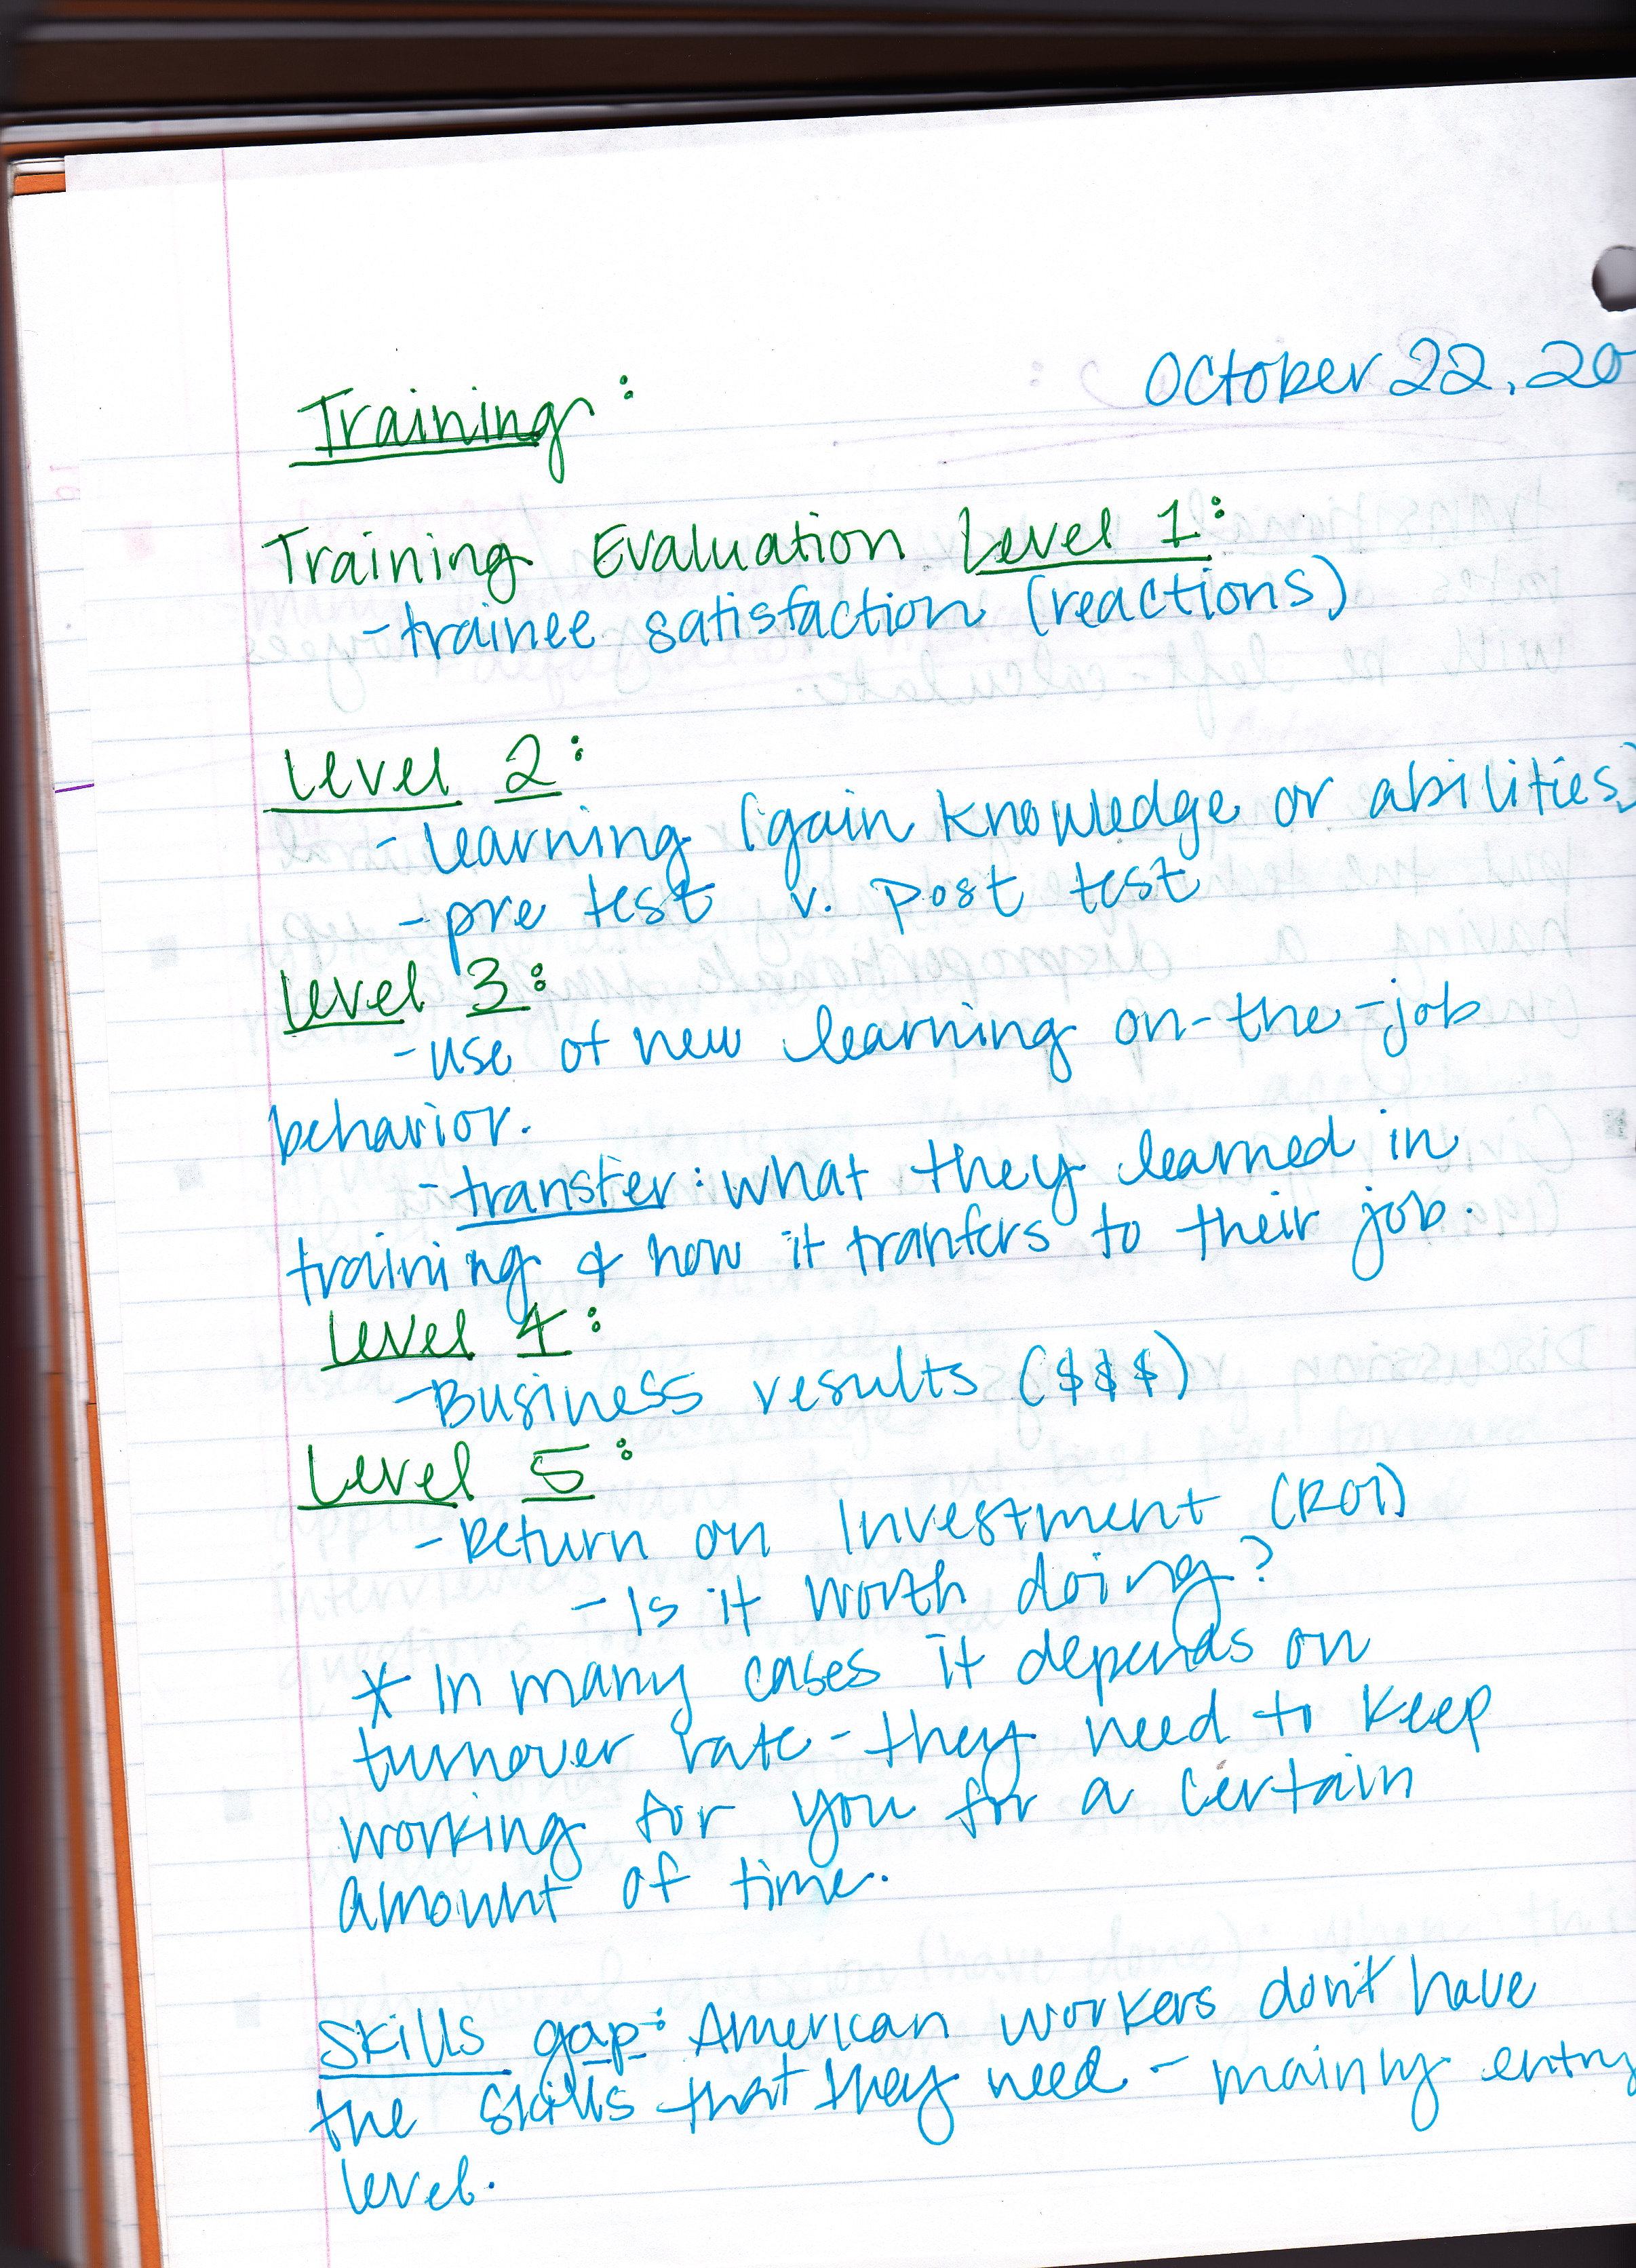 October 22, 20
Training:
Training Evaluation Level 1:
-trainee satisfaction (reactions)
Level 2:
-learning (gain knowledge or abilities)
-pre test v. post test
Level 3:
-use of new learning on-the-job
behavior.
-transfer: what they learned in
training & how it tranfers to their job.
Level 4:
-Business results ($$$)
Level 5:
-Return on Investment (ROI)
-Is it worth doing?
* In many cases it depends on
turnover rate - they need to keep
working for you for a certain
amount of time.
Skills gap: American workers don't have
the skills that they need - mainly entry
level.